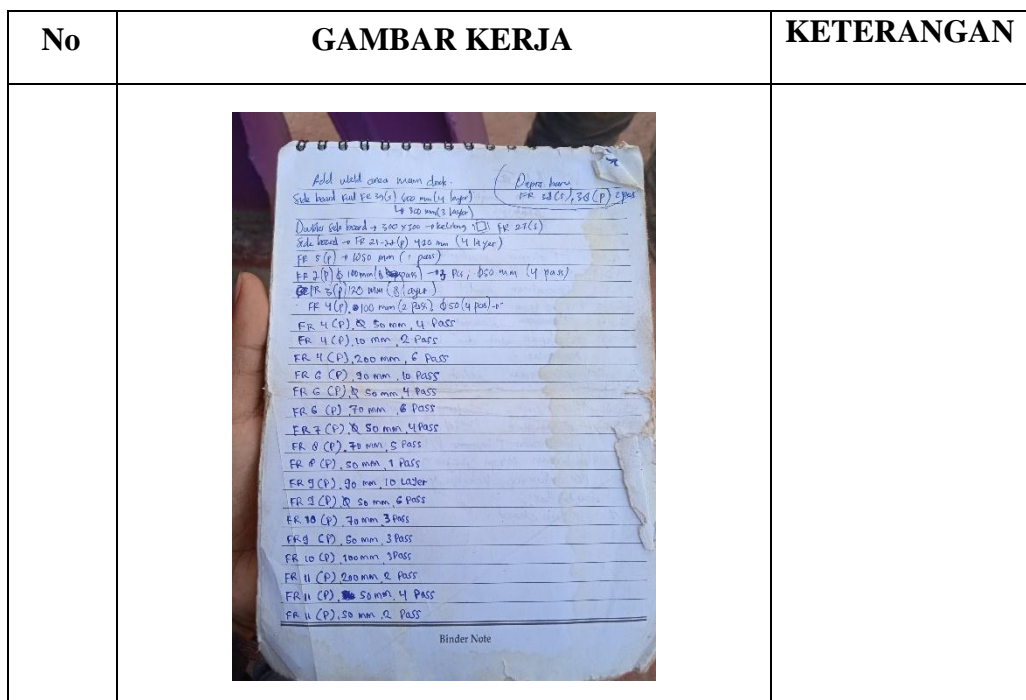 No
GAMBAR KERJA
KETERANGAN
Add weld area main deck.
Side board FR 39(s) 600 mm (4 layer)
300 mm (3 layer)
FR 38(s), 38(p) 2 pas
Doubler side board → 300 x 300 → keliling FR 27(s)
Side board → FR 21-22(p) 420 mm (4 layer)
FR 5(p) → 1050 mm (1 pass)
FR 2(p) ϕ 100mm (8 pass) → 3 Pcs, ϕ50 mm (4 pass)
FR 3(p) 120 mm (8 layer)
FR 4(p). 100 mm (2 Pass) ϕ50 (4 pas)
FR 4 (P). 50 mm, 4 Pass
FR 4 (P). 10 mm, 2 Pass
FR 4 (P). 200 mm, 6 Pass
FR 6 (P). 90 mm, 10 Pass
FR 6 (P). 50 mm, 4 Pass
FR 6 (P) 70 mm, 6 Pass
FR 7 (P). 50 mm, 4 Pass
FR 8 (P). 70 mm, 5 Pass
FR 8 (P). 50 mm, 1 Pass
FR 9 (P). 90 mm, 10 Layer
FR 9 (P) 50 mm, 6 Pass
FR 10 (P). 70 mm, 3 Pass
FR 9 (P). 50 mm, 3 Pass
FR 10 (P) 100 mm, 3 Pass
FR 11 (P) 200 mm, 2 Pass
FR 11 (P). 50 mm, 4 Pass
FR 11 (P). 50 mm, 2 Pass
Binder Note